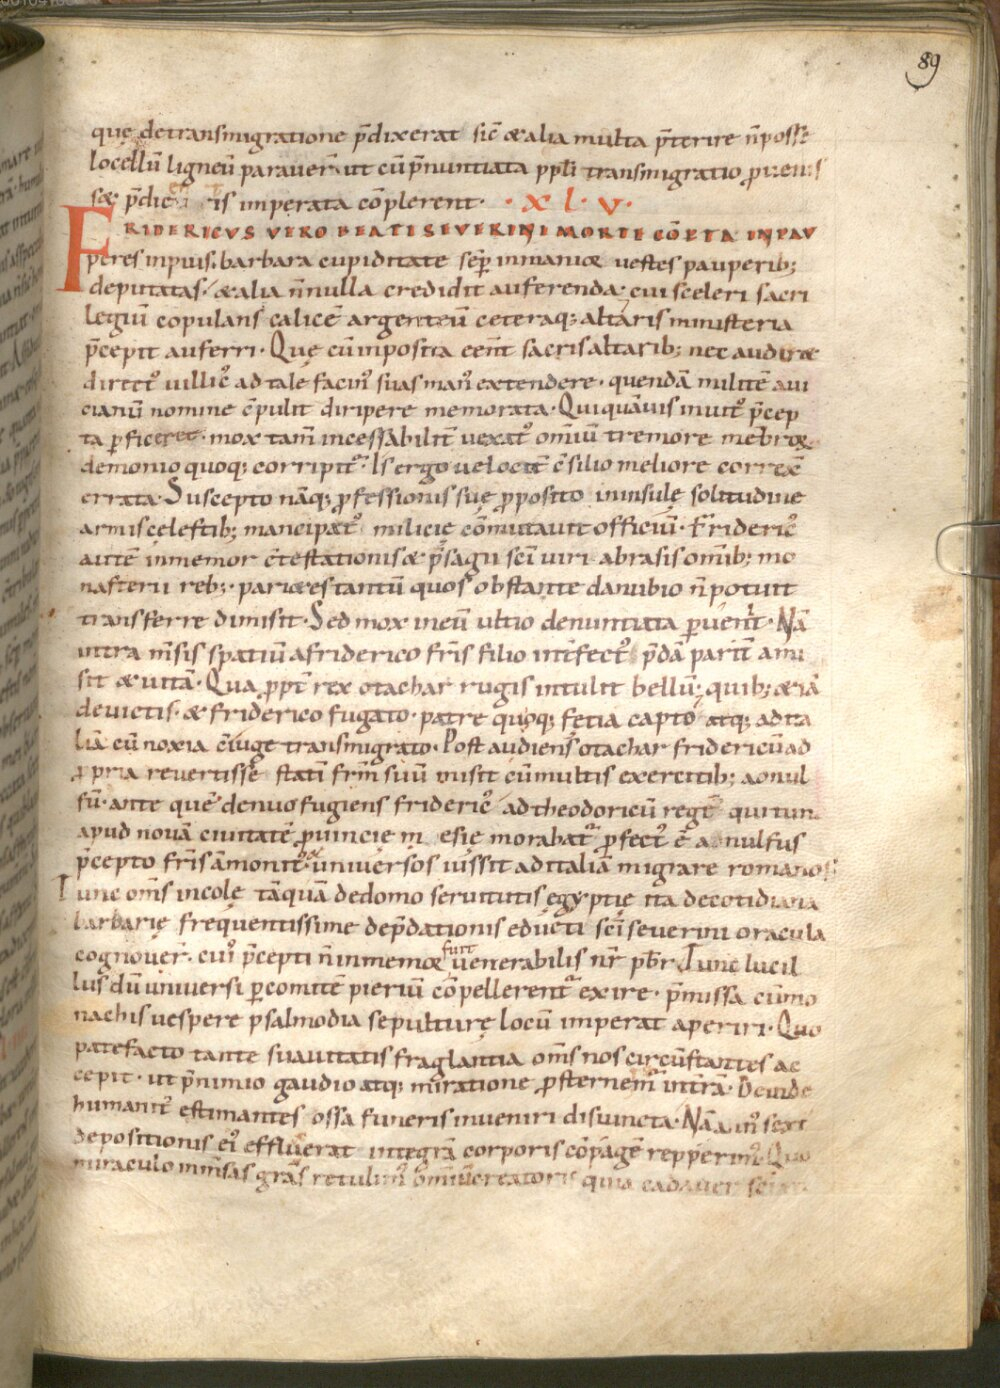 89
quę detransmigratione p̄dixerat sic̄ & alia multa p̄terire n̄ posse
locellū ligneū parauer̄ ut cū p̄nuntiata ppli transmigratio
sæ p̄dic is imperata cōplerent · · X L · V ·
FRIDERICVS VERO BEATI SEVERINI MORTE CŌPTA IN PAV
peres inpuis. barbara cupiditate semp̄ inmanior uestes pauperib;
deputatas. & alia n̄nulla credidit auferenda. cui sceleri sacri
legiū copulans calicē argenteū ceteraq; altaris ministeria
p̄cepit auferri. Quę cū inposita eēnt sacris altarib; nec auderæ
direct᾽ uillic᾽ ad tale facin᾽ suas man᾽ extendere. quendā militē aui
cianū nomine c̄pulit diripere memorata. Qui quāuis inuit᾽ p̄cep
ta ꝑficeret. mox tam̄ incessabilit̄ uexat᾽ omiū tremore mēbroꝝ
demonio quoq; corripit᾽. Is ergo uelocit̄ c̄silio meliore correx̄
errata. Suscepto nāq; ꝓfessionis suę ꝓposito in insulę solitudine
armis cęlestib; mancipat᾽ milicię cōmutauit officiū. Frideric᾽
autē inmemor c̄testationis & p̄sagii sci uiri. abrasis omib; mo
nasterii reb;. pariætes tantū quos obstante danubio n̄ potuit
transferre dimisit. Sed mox in eū ultio denuntiata ꝑuenit. Nā
intra m̄sis spatiū a friderico fr̄is filio int̄fect᾽ p̄dā parit̄ ami
sit & uitā. Qua ꝓpt̄ rex otachar rugis intulit bellū; quib; & iā
deuictis. & friderico fugato. patre quoq; fętia capto atq; ad ita
liā cū noxia c̄iuge transmigrato. Post audiens otachar fridericū ad
ꝓpria reuertisse statī fr̄m suū misit cū multis exercitib; aonul
fū. ante quē denuo fugiens frideric᾽ ad theodoricū regē qui tunc
apud nouā ciuitatē ꝓuincię m esię morabat᾽ ꝓfect᾽ ē. aonulfus
p̄cepto fr̄is āmonit᾽ uniuersos iussit ad italiā migrare romanos
Tunc om̄s incolę tāquā de domo seruitutis egyptię ita de cotidiana
barbarię frequentissime dep̄dationis educti sci seuerini oracula
cognouer̄. cui᾽ p̄cepti n̄ inmemor fuit uenerabilis nr̄ pb̄r. Tunc lucil
lus dū uniuersi ꝑ comitē pieriū cōpellerent᾽ exire. p̄missa cū mo
nachis uespere psalmodia sepulturę locū imperat aperiri. Quo
patefacto tante suauitatis fraglantia om̄s nos circūstantes ac
cepit. ut p̄ nimio gaudio atq; miratione ꝓsternem᾽ in t̄ra. Deinde
humanit᾽ estimantes ossa funeris inueniri disiuncta. Nā ann᾽ sext
depositionis ei᾽ effluxerat integrā corporis cōpagē repperim᾽. Quo
miraculo inmēsas grās retulim᾽ omiū creatori quia cadauer